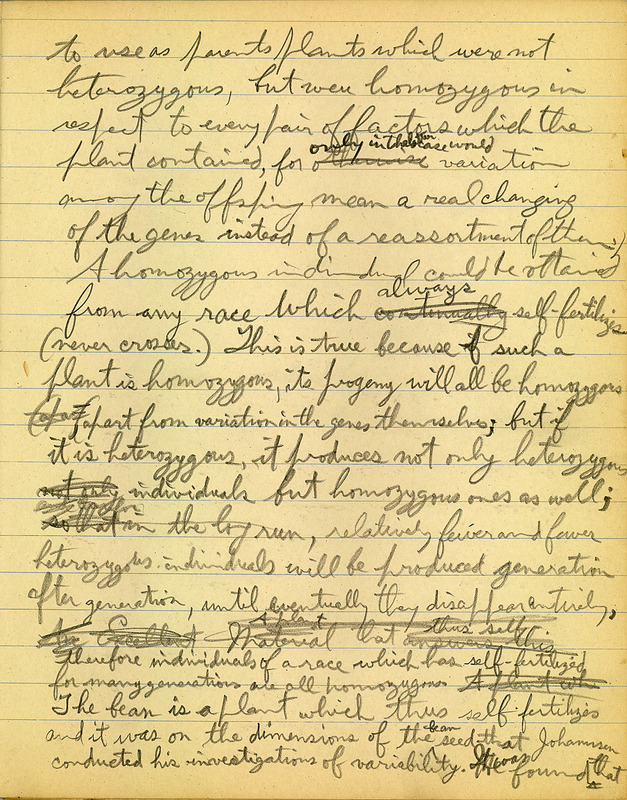 to use as parents plants which were not
heterozygous, but were homozygous in
respect to every pair of factors which the
only in the latter case would
plant contained, for otherwise variation
among the offspring mean a real changing
of the genes instead of a reassortment of them.)
A homozygous individual could be obtained
always
from any race which continually self-fertilizes
(never crosses.) This is true because if such a
plant is homozygous, its progeny will all be homozygous
(apart from variation in the genes themselves; but if
it is heterozygous, it produces not only heterozygous
not only individuals but homozygous ones as well;
so that in the long run, relatively fewer and fewer
heterozygous individuals will be produced generation
after generation, until eventually they disappear entirely,
A plant thus self
An Excellent Material that answers this
therefore individuals of a race which has self-fertilized
for many generations are all homozygous A plant wh
The bean is a plant which thus self-fertilizes
bean
and it was on the dimensions of the seed that Johannsen
conducted his investigations of variability. He found that